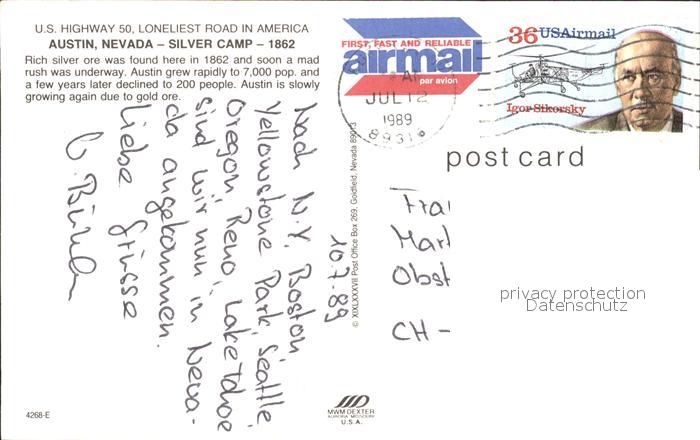 U.S. HIGHWAY 50, LONELIEST ROAD IN AMERICA
AUSTIN, NEVADA – SILVER CAMP – 1862
Rich silver ore was found here in 1862 and soon a mad
rush was underway. Austin grew rapidly to 7,000 pop. and
a few years later declined to 200 people. Austin is slowly
growing again due to gold ore.
FIRST, FAST AND RELIABLE
airmail
par avion
JUL 12
1989
89310
36 USAirmail
Igor Sikorsky
post card
10.7.89
Nach N.Y. Boston
Yellowstone Park, Seattle,
Oregon, Reno, Lake Tahoe
sind wir nun in Neva-
da angekommen.
Liebe Grüsse
© XIXLXXXVII Post Office Box 269, Goldfield, Nevada 89013
Frau
Obst
CH –
privacy protection
Datenschutz
4268-E
MWM DEXTER
AURORA MISSOURI
U.S.A.